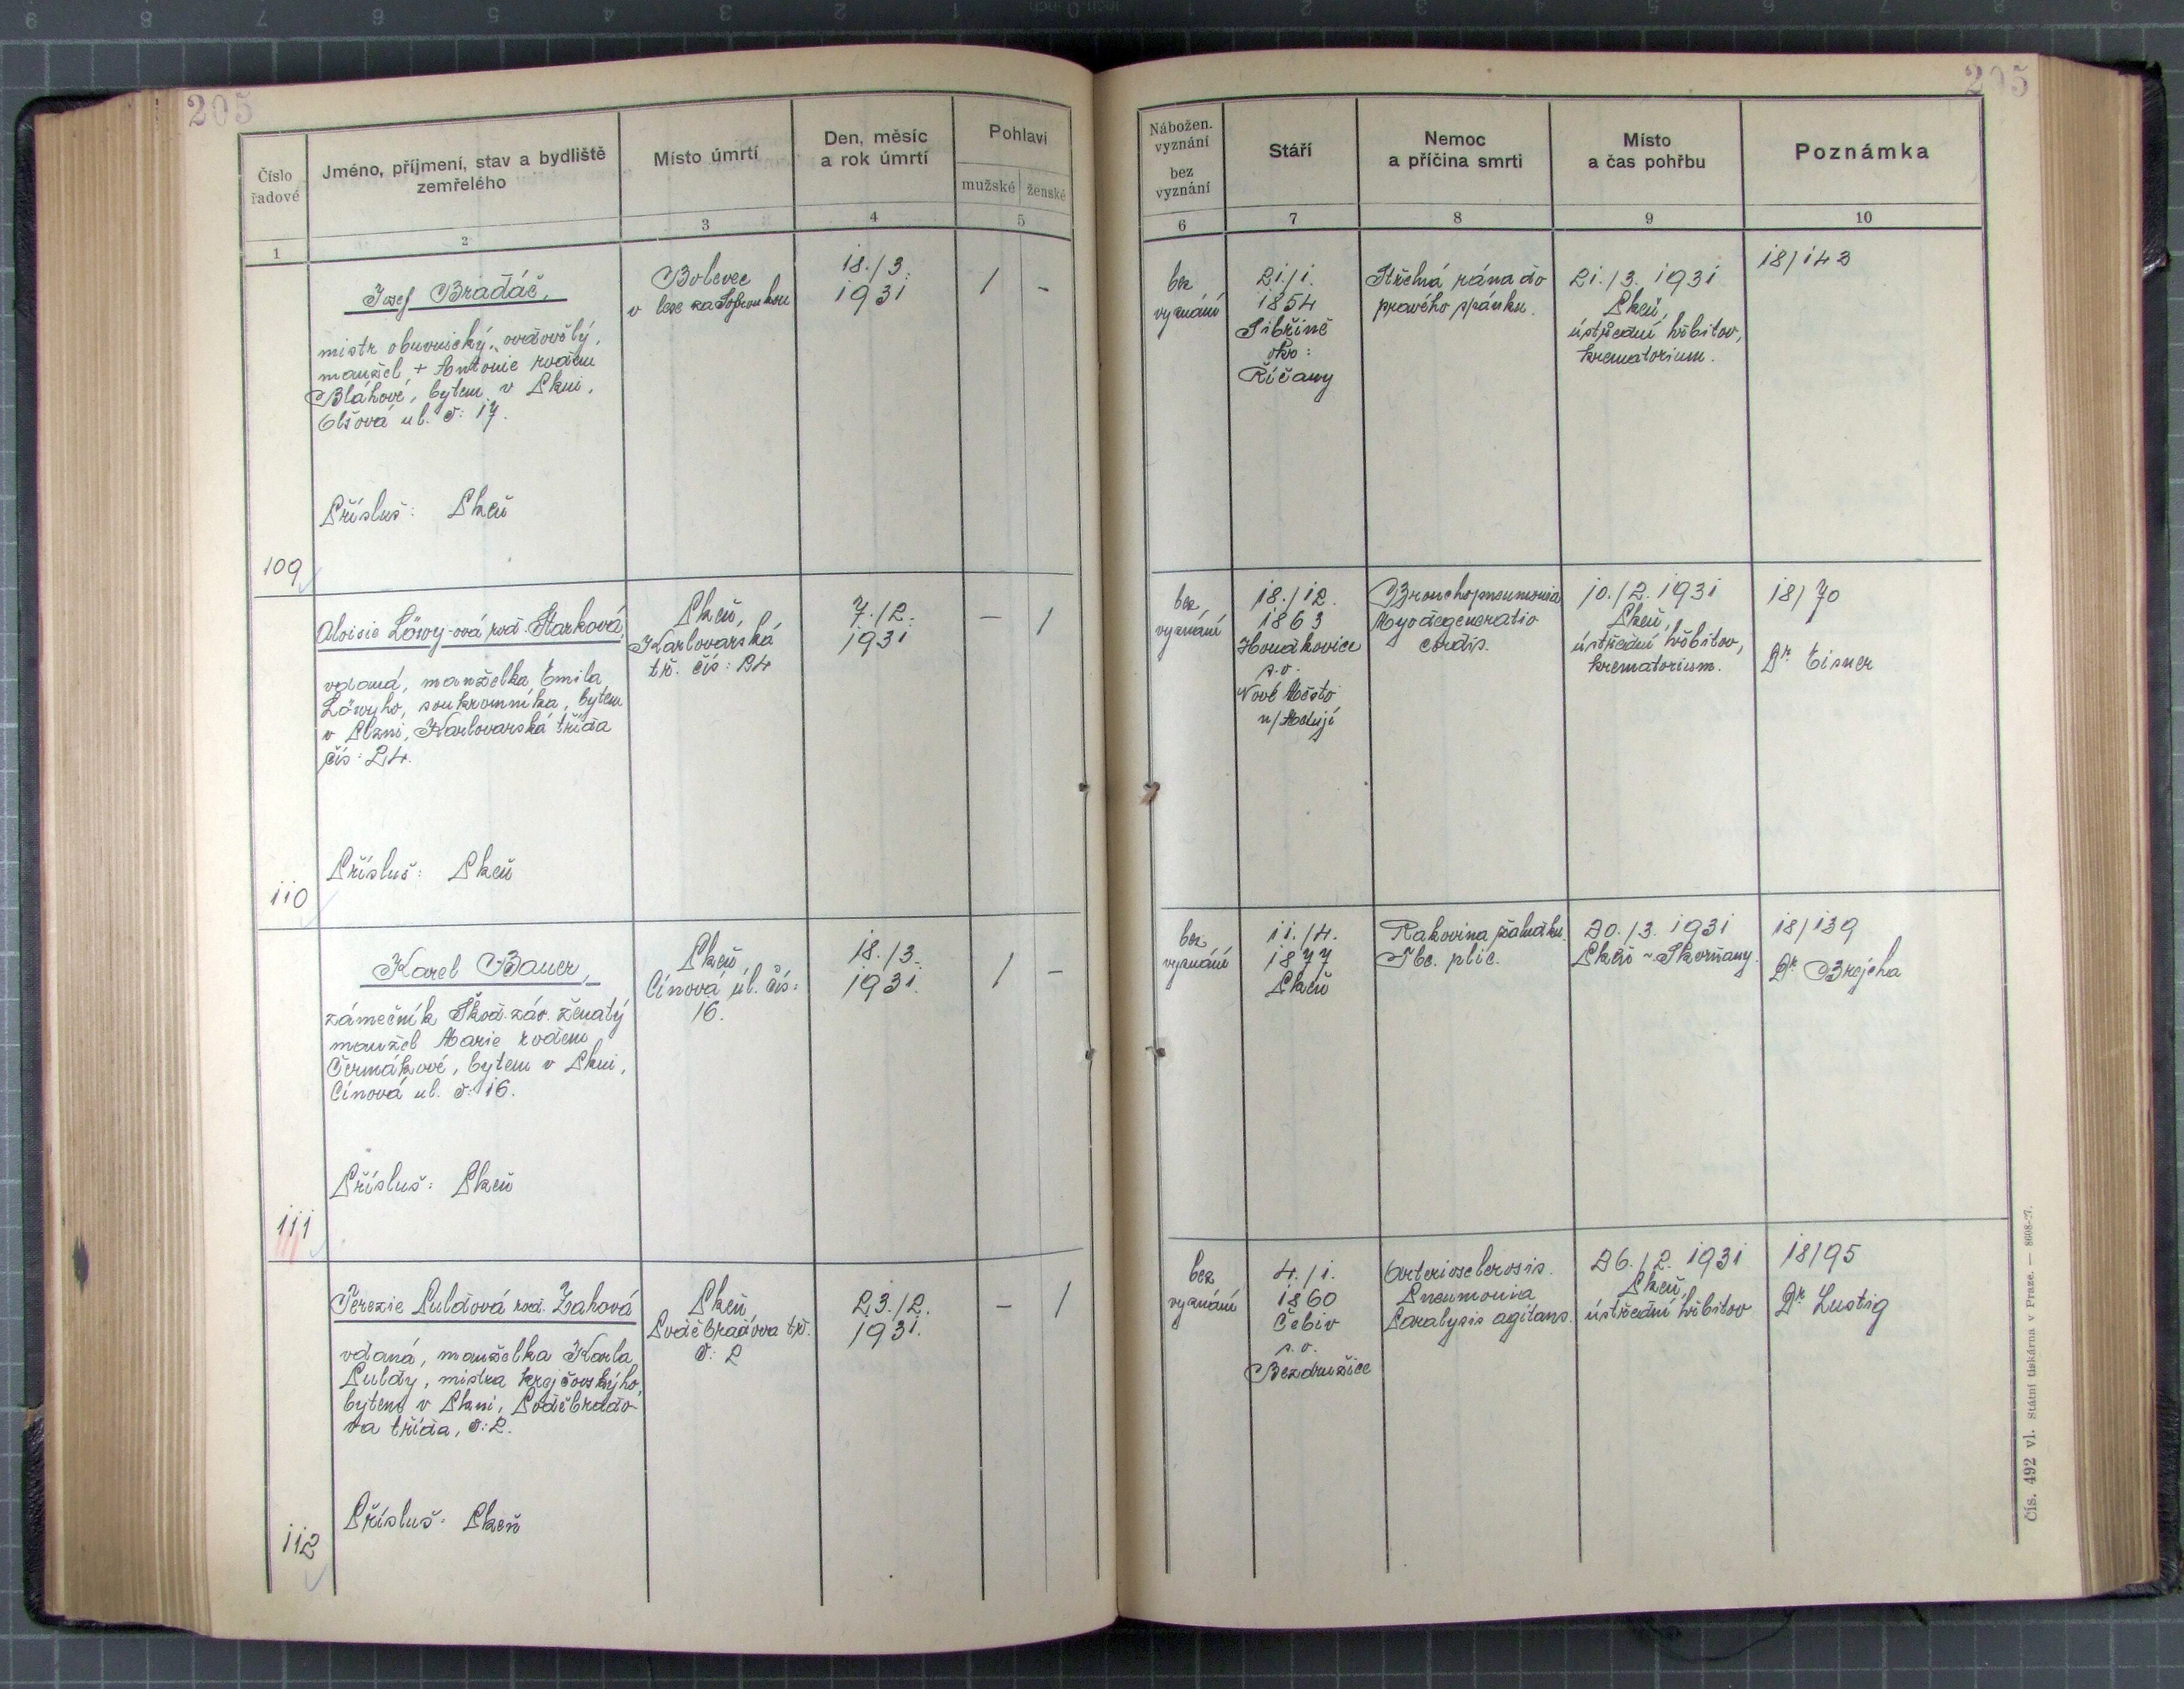 205
205
Číslo
řadové
Jméno, příjmení, stav a bydliště
zemřelého
Místo úmrtí
Den, měsíc
a rok úmrtí
Pohlaví
mužské
ženské
1
2
3
4
5
Nábožen.
vyznání
bez
vyznání
Stáří
Nemoc
a příčina smrti
Místo
a čas pohřbu
Poznámka
6
7
8
9
10
109
Josef Bradáč,
mistr obuvnický, ovdovělý,
manžel + Antonie rodem
Bláhové, bytem v Plzni,
Olšová ul. č: 17.
Přísluš: Plzeň
Bolevec
v lese za
18./3.
1931
1
-
bez
vyznání
21./1.
1854
Sibřině
okr:
Říčany
Střelná rána do
pravého spánku.
21./3. 1931
Plzeň,
ústřední hřbitov,
krematorium.
18/143
110
Aloisie Löwy-ová roz. Starková,
vdaná, manželka Emila
Löwyho, soukromníka, bytem
v Plzni, Karlovarská třída
čís: 24.
Přísluš: Plzeň
Plzeň,
Karlovarská
tř. čís: 24
7./2.
1931
-
1
bez
vyznání
18./12.
1863
s.o.
Nové Město
n/Metují
Bronchopneumonia
Myodegeneratio
cordis.
10./2. 1931
Plzeň,
ústřední hřbitov,
krematorium.
18/70
Dr. Eisner
111
Karel Bauer,
zámečník Škod. záv. ženatý
manžel Marie rodem
Čermákové, bytem v Plzni,
Cínová ul. č: 16.
Přísluš: Plzeň
Plzeň,
Cínová ul. čís:
16.
18./3.
1931.
1
-
bez
vyznání
11./4.
1877
Plzeň
Rakovina žaludku.
Tbc. plic.
20./3. 1931
Plzeň - Skvrňany.
18/139
Dr. Brejcha
112
Terezie Puldová roz. Zahová
vdaná, manželka Karla
Puldy, mistra krejčovskýho,
bytem v Plzni, Poděbrado-
va třída, č: 2.
Přísluš: Plzeň
Plzeň,
Poděbradova tř.
č: 2
23./2.
1931.
-
1
bez
vyznání
4./1.
1860
Čebiv
s.o.
Bezdružice
Arteriosclerosis.
Pneumonia
Paralysis agitans.
26./2. 1931
Plzeň,
ústřední hřbitov
18/95
Dr. Lustig
Čís. 492 vl. Státní tiskárna v Praze. — 8608-27.